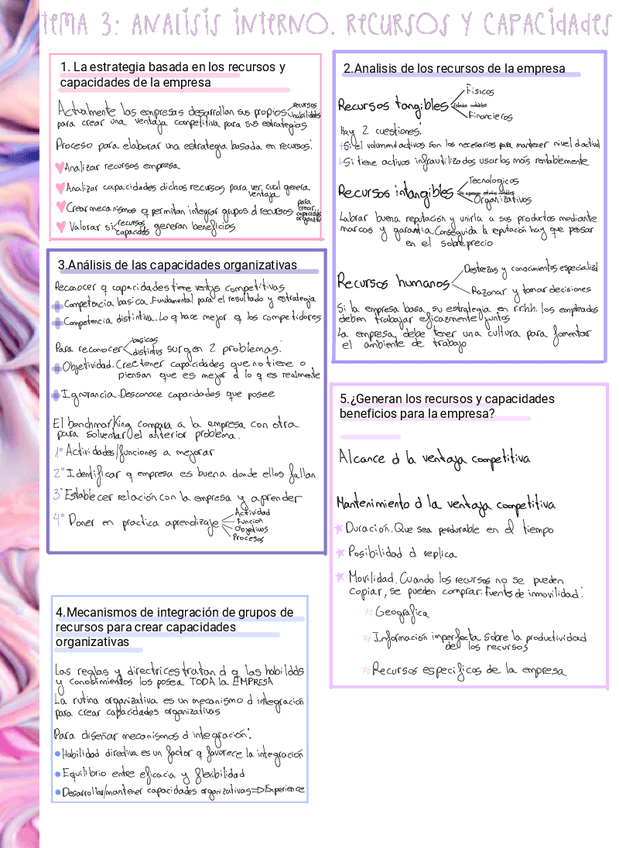 TEMA 3: ANALISIS INTERNO. RECURSOS Y CAPACIdAdES
1. La estrategia basada en los recursos y
capacidades de la empresa
Actualmente las empresas desarrollan sus propios recursos
habilidades
para crear una ventaja competitiva para sus estrategias
Proceso para elaborar una estrategia basada en recursos:
Analizar recursos empresa
Analizar capacidades dichos recursos para ver cual genera
ventaja
Crear mecanismos q permitan integrar grupos d recursos para
crear
capacidades
organizativas
Valorar si recursos
capacidades generan beneficios
2.Analisis de los recursos de la empresa
Recursos tangibles
Fisicos
Financieros
Hay 2 cuestiones:
Si el volumen activos son los necesarios para mantener nivel d actvd
Si tiene activos infrautilizados usarlos más rentablemente
Recursos intangibles
Tecnologicos
Organizativos
Labrar buena reputación y unirla a sus productos mediante
marcas y garantia. Conseguida la eputación hay que pensar
en el sobreprecio
Recursos humanos
Destrezas y conocimientos especializd
Razonar y tomar decisiones
Si la empresa basa su estrategia en rrhh. los empleados
deben trabajar eficazmente juntos
La empresa debe tener una cultura para fomentar
el ambiente de trabajo
3.Análisis de las capacidades organizativas
Reconocer q capacidades tiene ventas competitivas.
Competencia basica. Fundamental para el resultado y estrategia
Competencia distintiva. Lo q hace mejor q los competidores
Para reconocer basicas
distintvs surgen 2 problemas:
Objetividad. Cree tener capacidades que no tiene o
piensan que es mejor d lo q es realmente
Ignorancia. Desconoce capacidades que posee
El benchmarking compara a la empresa con otra
para solventar el anterior problema.
1º Actividades/funciones a mejorar
2º Identificar q empresa es buena donde ellos fallan
3º Establecer relación con la empresa y aprender
4º Poner en practica aprendizaje
Actividad
Función
Objetivos
Procesos
4.Mecanismos de integración de grupos de
recursos para crear capacidades
organizativas
Las reglas y directrices tratan d q las habilddds
y conocimientos los posea TODA la EMPRESA
La rutina organizativa es un mecanismo d integración
para crear capacidades organizativas
Para diseñar mecanismos d integración:
Habilidad directiva es un factor q favorece la integración
Equilibrio entre eficacia y flexibilidad
Desarrollar/mantener capacidades organizativas=>Experience
5.¿Generan los recursos y capacidades
beneficios para la empresa?
Alcance d la ventaja competitiva
Mantenimiento d la ventaja competitiva
Duración. Que sea perdurable en el tiempo
Posibilidad d replica
Movilidad. Cuando los recursos no se pueden
copiar, se pueden comprar. Fuents de inmovilidad:
Geográfica
Información imperfecta sobre la productividad
de los recursos
Recursos especificos de la empresa